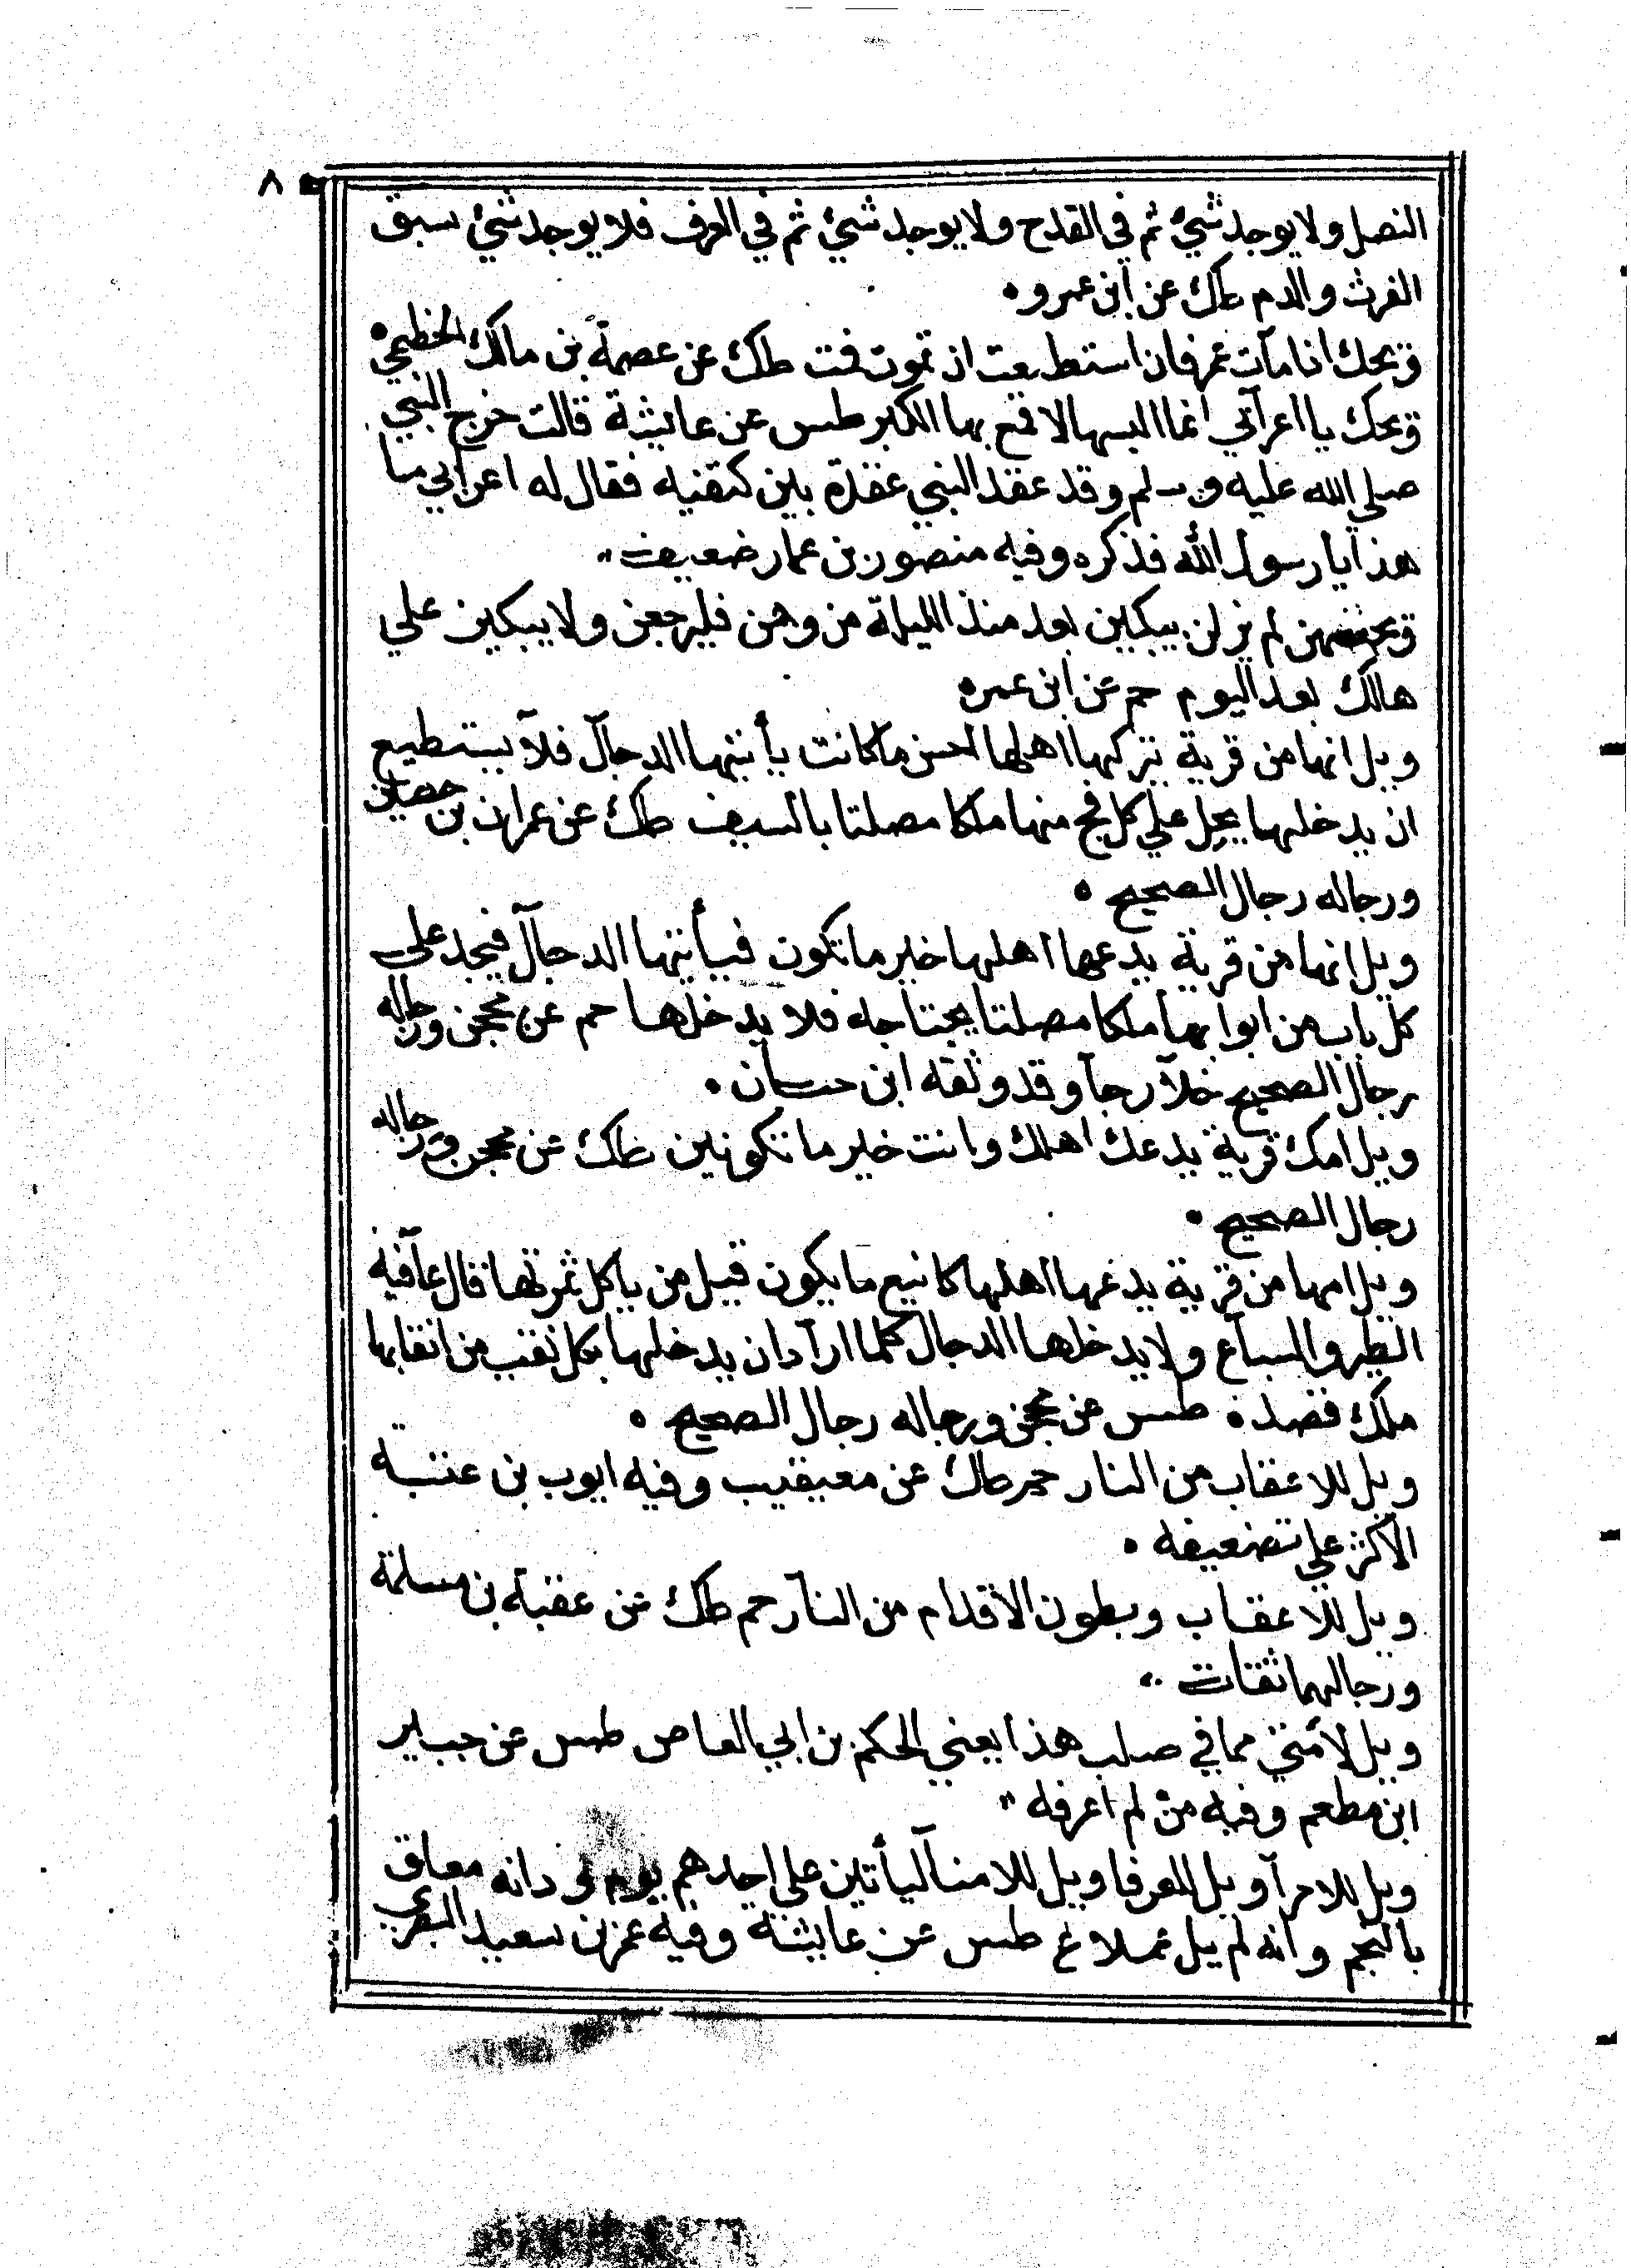 ٨
النصل ولا يوجد شيئ ثم في القدح ولا يوجد شيئ ثم في العرف فلا يوجد شيئ سبق
الفرث والدم طك عن ابن عمرو
ويحك اذا مات عمر فان استطعت ان تموت فمت طك عن عصمة بن مالك الخطمي
ويحك يا اعرابي انما البسها لاقمع بها الكبر طس عن عايشة قالت خرج النبي
صلى الله عليه وسلم وقد عقد النبي عقدة بين كتفيه فقال له اعرابي ما
هذا يا رسول الله فذكره وفيه منصور بن عمار ضعيف
لم يزلن يبكين بعد منذ الليلة من وهن فليرجعن ولا يبكين علي
هالك بعد اليوم حم عن ابن عمر
ويل انها من قرية يتركها اهلها احسن ما كانت يأتيها الدجال فلا يستطيع
ان يدخلها يجد علي كل فج منها ملكا مصلتا بالسيف طك عن عمران بن حصين
ورجاله رجال الصحيح
ويل انها من قرية يدعها اهلها خير ما تكون فيأتيها الدجال فيجد على
كل باب من ابوابها ملكا مصلتا بجناحه فلا يدخلها حم عن محجن ورجاله
رجال الصحيح خلا رجا وقد وثقه ابن حبان
ويل امك قرية يدعك اهلك وانت خير ما تكونين طك عن محجن ورجاله
رجال الصحيح
ويل امها من قرية يدعها اهلها كاينع ما يكون قيل من ياكل ثمرتها قال عافية
الطير والسباع ولا يدخلها الدجال كلما اراد ان يدخلها بكل نقب من انقابها
ملك فصده طس عن محجن ورجاله رجال الصحيح
ويل للاعقاب من النار حم طك عن معيقيب وفيه ايوب بن عتبة
الاكثر علي تضعيفه
ويل للاعقاب وبطون الاقدام من النار حم طك عن عقبة بن مسلمة
ورجالهما ثقات
ويل لأمتي مما في صلب هذا يعني الحكم بن ابي العاص طس عن جبير
ابن مطعم وفيه من لم اعرفه
ويل للامرآ ويل للعرفا ويل للامنآ ليأتين على احدهم يوم دانه معلق
بالنجم وانه لم يل عملا ع طس عن عايشة وفيه عمر بن سعيد البصري